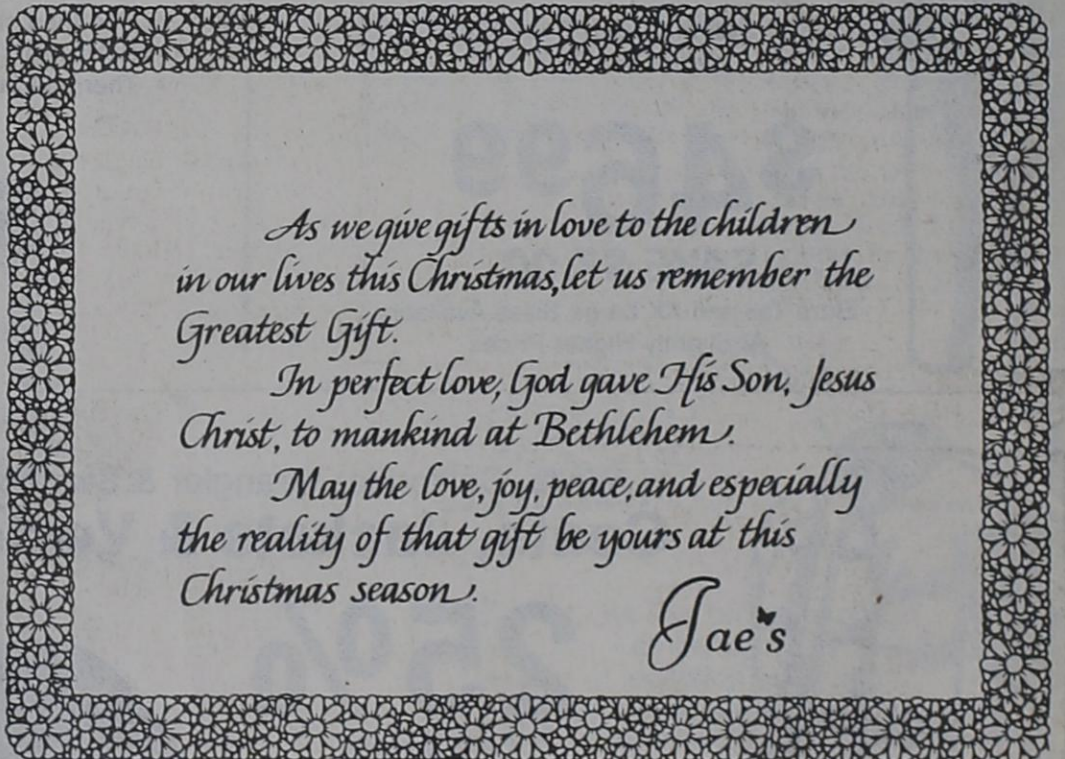 As we give gifts in love to the children
in our lives this Christmas, let us remember the
Greatest Gift.
In perfect love, God gave His Son, Jesus
Christ, to mankind at Bethlehem.
May the love, joy, peace, and especially
the reality of that gift be yours at this
Christmas season.
Jae's